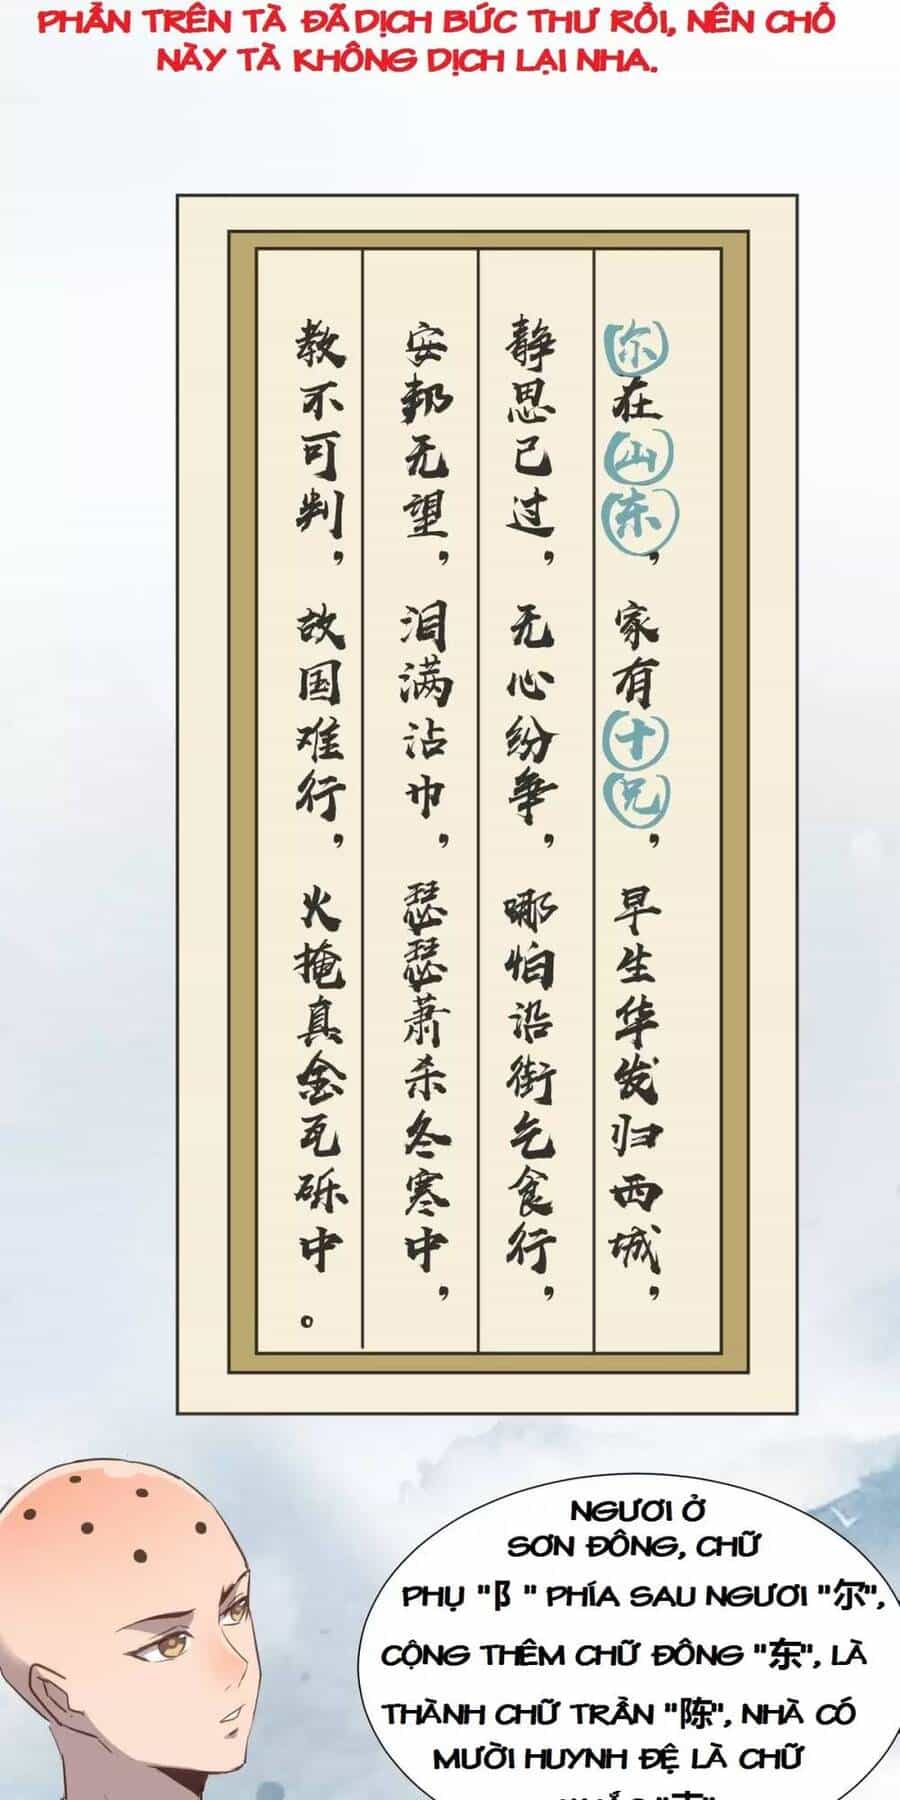 PHẦN TRÊN TÀ ĐÃ DỊCH BỨC THƯ RỒI, NÊN CHỖ
NÀY TÀ KHÔNG DỊCH LẠI NHA.
尔在山东，家有十兄，早生华发归西城，
静思己过，无心纷争，哪怕沿街乞食行，
安邦无望，泪满沾巾，瑟瑟萧杀冬寒中，
教不可判，故国难行，火掩真金瓦砾中。
NGƯƠI Ở
SƠN ĐÔNG, CHỮ
PHỤ "阝" PHÍA SAU NGƯƠI "尔",
CỘNG THÊM CHỮ ĐÔNG "东", LÀ
THÀNH CHỮ TRẦN "陈", NHÀ CÓ
MƯỜI HUYNH ĐỆ LÀ CHỮ